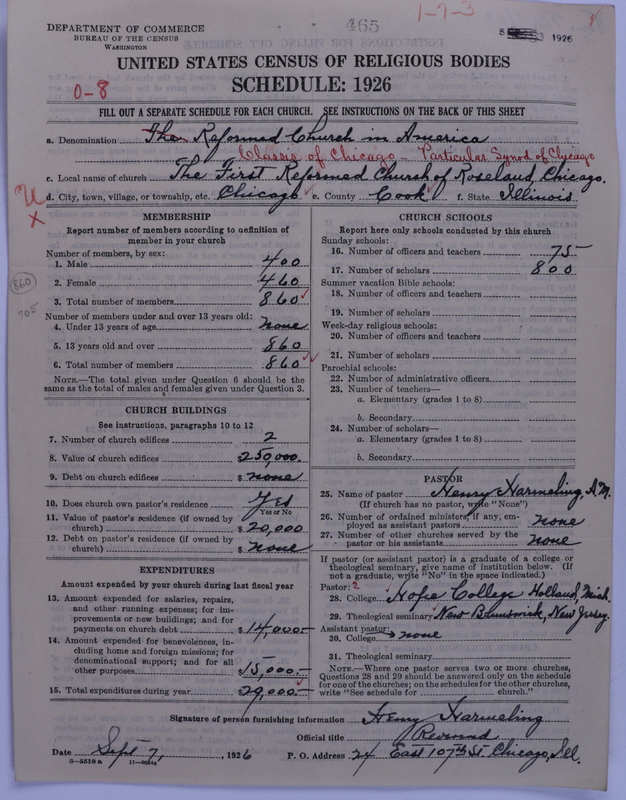 465
1-7-3
DEPARTMENT OF COMMERCE
BUREAU OF THE CENSUS
WASHINGTON
1926
UNITED STATES CENSUS OF RELIGIOUS BODIES
SCHEDULE: 1926
0-8
FILL OUT A SEPARATE SCHEDULE FOR EACH CHURCH. SEE INSTRUCTIONS ON THE BACK OF THIS SHEET
a. Denomination The Reformed Church in America
Classis of Chicago - Particular Synod of Chicago
c. Local name of church The First Reformed Church of Roseland, Chicago.
d. City, town, village, or township, etc. Chicago e. County Cook f. State Illinois
MEMBERSHIP
Report number of members according to definition of
member in your church
Number of members, by sex:
1. Male 400
2. Female 460
3. Total number of members 860
Number of members under and over 13 years old:
4. Under 13 years of age none
5. 13 years old and over 860
6. Total number of members 860
860
705
NOTE.—The total given under Question 6 should be the
same as the total of males and females given under Question 3.
CHURCH BUILDINGS
See instructions, paragraphs 10 to 12
7. Number of church edifices 2
8. Value of church edifices $250,000.
9. Debt on church edifices $ none
10. Does church own pastor's residence Yes
Yes or No
11. Value of pastor's residence (if owned by
church) $20,000
12. Debt on pastor's residence (if owned by
church) $ none
EXPENDITURES
Amount expended by your church during last fiscal year
13. Amount expended for salaries, repairs,
and other running expenses; for im-
provements or new buildings; and for
payments on church debt $14,000.-
14. Amount expended for benevolences, in-
cluding home and foreign missions; for
denominational support; and for all
other purposes $15,000.-
15. Total expenditures during year $29,000.-
CHURCH SCHOOLS
Report here only schools conducted by this church
Sunday schools:
16. Number of officers and teachers 75
17. Number of scholars 800
Summer vacation Bible schools:
18. Number of officers and teachers
19. Number of scholars
Week-day religious schools:
20. Number of officers and teachers
21. Number of scholars
Parochial schools:
22. Number of administrative officers
23. Number of teachers—
a. Elementary (grades 1 to 8)
b. Secondary
24. Number of scholars—
a. Elementary (grades 1 to 8)
b. Secondary
PASTOR
25. Name of pastor Henry Harmeling, A.M.
(If church has no pastor, write "None")
26. Number of ordained ministers, if any, em-
ployed as assistant pastors none
27. Number of other churches served by the
pastor or his assistants none
If pastor (or assistant pastor) is a graduate of a college or
theological seminary, give name of institution below. (If
not a graduate, write "No" in the space indicated.)
Pastor: 2
28. College Hope College Holland, Mich.
29. Theological seminary New Brunswick, New Jersey.
Assistant pastor:
30. College none
31. Theological seminary
NOTE.—Where one pastor serves two or more churches,
Questions 28 and 29 should be answered only on the schedule
for one of the churches; on the schedules for the other churches,
write "See schedule for church."
Signature of person furnishing information Henry Harmeling
Official title Reverend
Date Sept 7, 1926 P. O. Address 24 East 107th St. Chicago, Ill.
8-5518 a